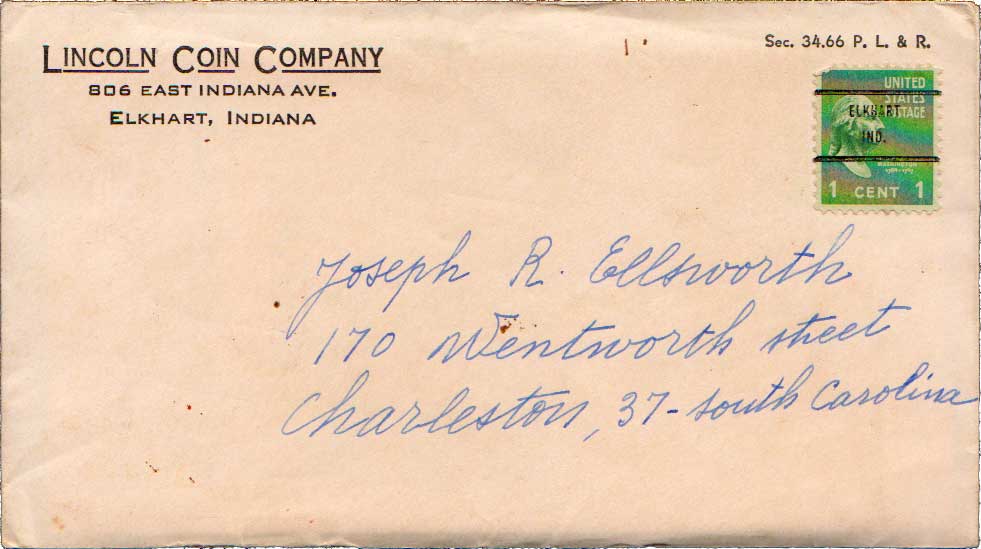 LINCOLN COIN COMPANY
806 EAST INDIANA AVE.
ELKHART, INDIANA
Sec. 34.66 P. L. & R.
UNITED
STATES
POSTAGE
ELKHART
IND.
WASHINGTON
1 CENT 1
Joseph R. Ellsworth
170 Wentworth street
Charleston, 37-south Carolina